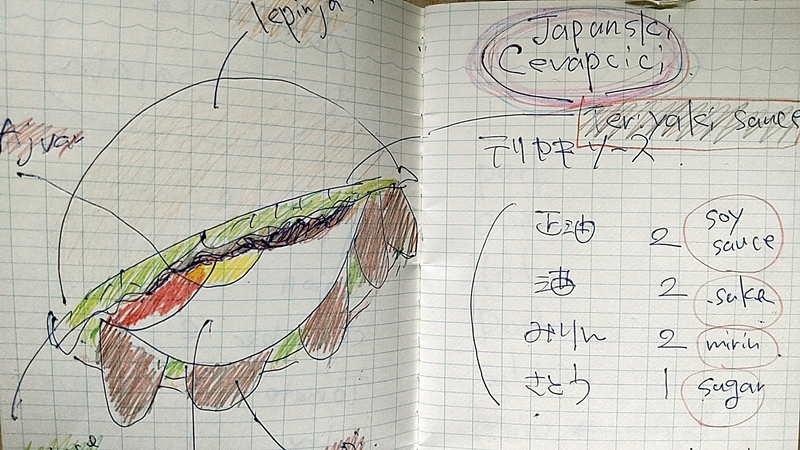 lepinja
Ajvar
Japanski
Cevapcici
Teriyaki sauce
テリヤキソース
正油 2 soy sauce
酒 2 sake
みりん 2 mirin
さとう 1 sugar